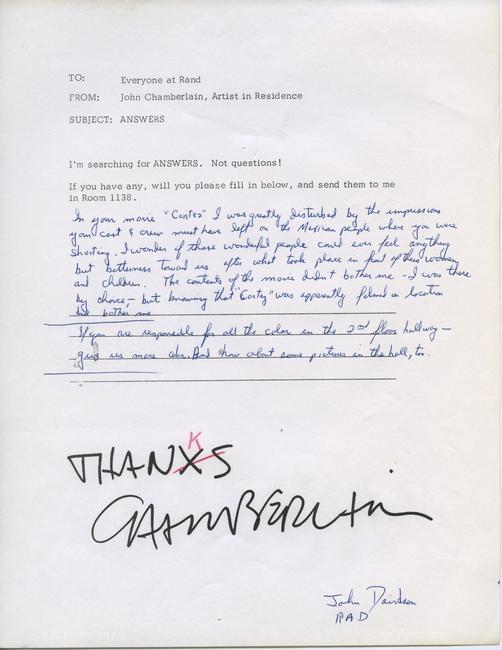 TO: Everyone at Rand
FROM: John Chamberlain, Artist in Residence
SUBJECT: ANSWERS
I'm searching for ANSWERS. Not questions!
If you have any, will you please fill in below, and send them to me
in Room 1138.
In your movie "Cortez" I was greatly disturbed by the impressions
your cast & crew must have left on the Mexican people where you were
shooting. I wonder if those wonderful people could ever feel anything
but bitterness toward us after what took place in front of their women
and children. The contents of the movie didn't bother me - I was there
by choice, - but knowing that "Cortez" was apparently filmed on location
did bother me
If you are responsible for all the color in the 2nd floor hallway -
give us more color. And how about some pictures in the hall, too.
K
THANXS
CHAMBERLAIN
John Davidson
RAD